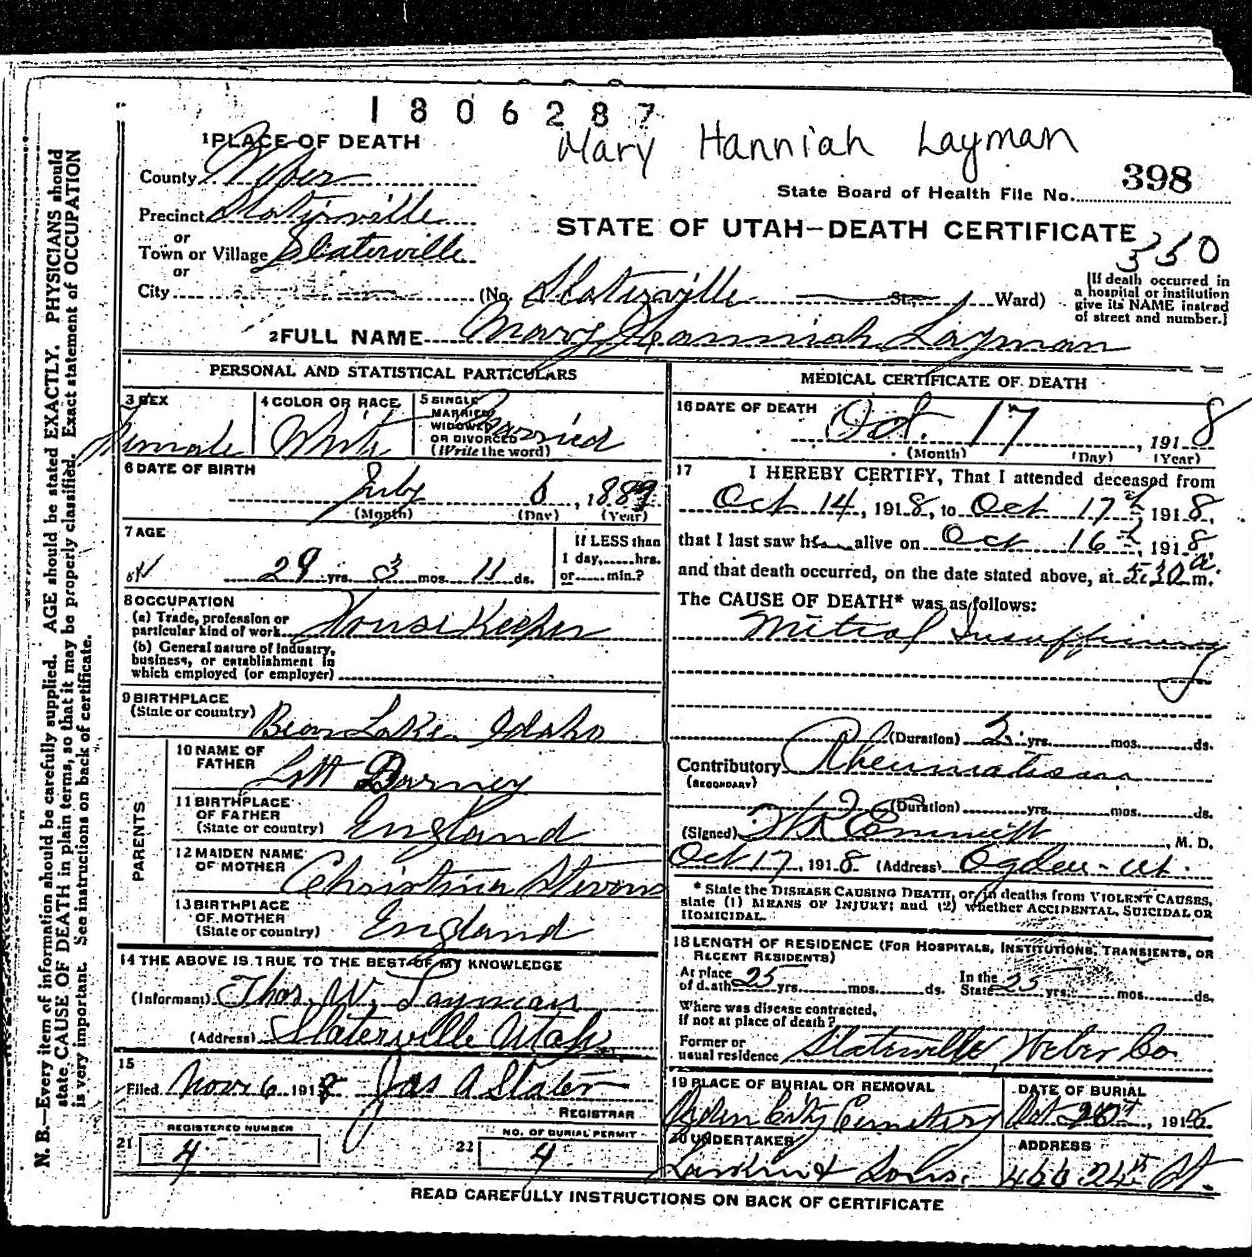 1806287
Mary Hanniah Layman
1 PLACE OF DEATH
State Board of Health File No. 398
County Weber
Precinct Slaterville
STATE OF UTAH—DEATH CERTIFICATE
350
or
Town or Village Slaterville
or
City
(No. Slaterville St., Ward)
[If death occurred in
a hospital or institution
give its NAME instead
of street and number.]
2 FULL NAME Mary Hanniah Layman
PERSONAL AND STATISTICAL PARTICULARS
3 SEX
Female
4 COLOR OR RACE
White
5 SINGLE
MARRIED
WIDOWED
OR DIVORCED
(Write the word)
Married
6 DATE OF BIRTH
July 6, 1889
(Month) (Day) (Year)
7 AGE
29 yrs. 3 mos. 11 ds.
If LESS than
1 day, hrs.
or min.?
8 OCCUPATION
(a) Trade, profession or
particular kind of work House Keeper
(b) General nature of Industry,
business, or establishment in
which employed (or employer)
9 BIRTHPLACE
(State or country) Bear Lake Idaho
PARENTS
10 NAME OF
FATHER Lott Durney
11 BIRTHPLACE
OF FATHER
(State or country) England
12 MAIDEN NAME
OF MOTHER Christina Stevens
13 BIRTHPLACE
OF MOTHER
(State or country) England
14 THE ABOVE IS TRUE TO THE BEST OF MY KNOWLEDGE
(Informant) Thos. W. Layman
(Address) Slaterville Utah
15
Filed Nov 6 1918 Jas A Slater
REGISTRAR
REGISTERED NUMBER
21 4
NO. OF BURIAL PERMIT
22 4
MEDICAL CERTIFICATE OF DEATH
16 DATE OF DEATH
Oct. 17, 1918
(Month) (Day) (Year)
17 I HEREBY CERTIFY, That I attended deceased from
Oct 14, 1918, to Oct 17th, 1918,
that I last saw her alive on Oct 16th, 1918
and that death occurred, on the date stated above, at 5:30 a. m.
The CAUSE OF DEATH* was as follows:
Mitral Insufficiency
(Duration) yrs. mos. ds.
Contributory Rheumatism
(SECONDARY)
(Duration) yrs. mos. ds.
(Signed) Emmett, M. D.
Oct 17, 1918 (Address) Ogden - Ut.
* State the DISEASE CAUSING DEATH, or, in deaths from VIOLENT CAUSES,
state (1) MEANS OF INJURY; and (2) whether ACCIDENTAL, SUICIDAL OR
HOMICIDAL.
18 LENGTH OF RESIDENCE (FOR HOSPITALS, INSTITUTIONS, TRANSIENTS, OR
RECENT RESIDENTS)
At place
of death 25 yrs. mos. ds.
In the
State 25 yrs. mos. ds.
Where was disease contracted,
if not at place of death?
Former or
usual residence Slaterville Weber Co.
19 PLACE OF BURIAL OR REMOVAL
Ogden City Cemetery
DATE OF BURIAL
Oct 20th, 191
20 UNDERTAKER
Larkin & Sons.
ADDRESS
466 24th St.
READ CAREFULLY INSTRUCTIONS ON BACK OF CERTIFICATE
N. B.—Every item of information should be carefully supplied. AGE should be stated EXACTLY. PHYSICIANS should
state CAUSE OF DEATH in plain terms, so that it may be properly classified. Exact statement of OCCUPATION
is very important. See instructions on back of certificate.